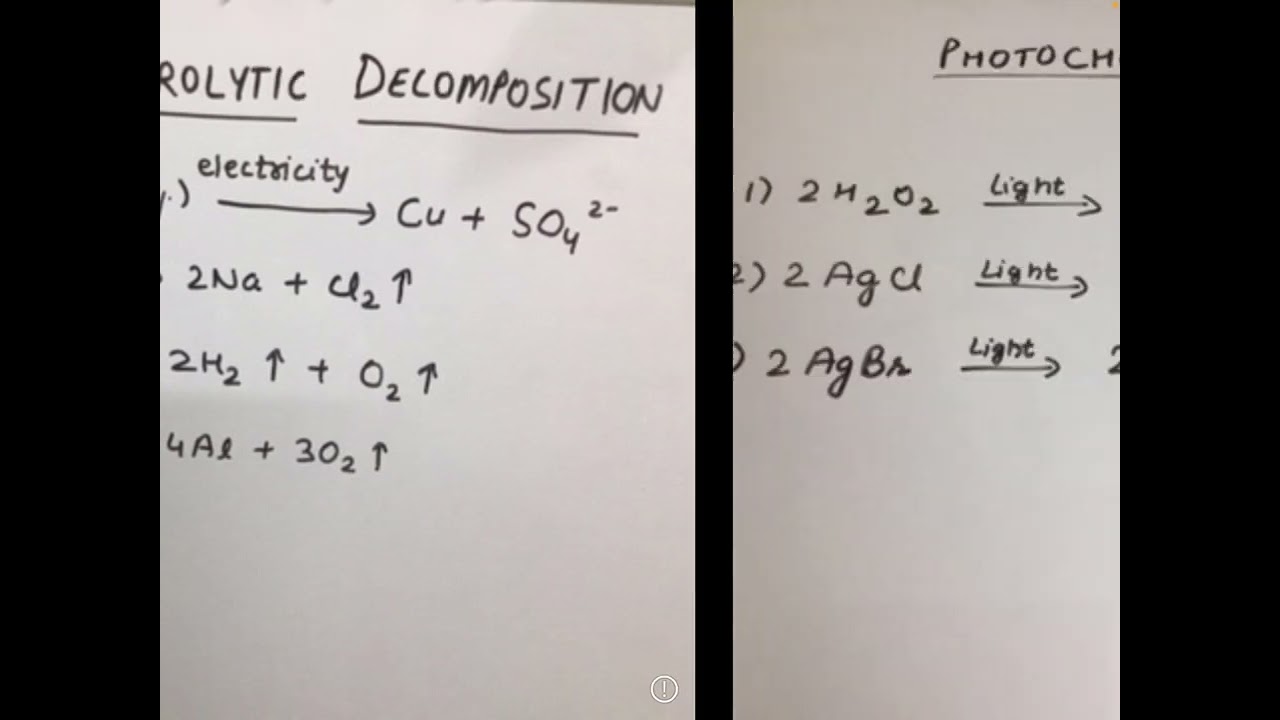 ROLYTIC DECOMPOSITION
electricity
.) → Cu + SO₄²⁻
2Na + Cl₂ ↑
2H₂ ↑ + O₂ ↑
4Al + 3O₂ ↑
PHOTOCH
1) 2H₂O₂ Light →
2) 2AgCl Light →
) 2AgBr Light → 2